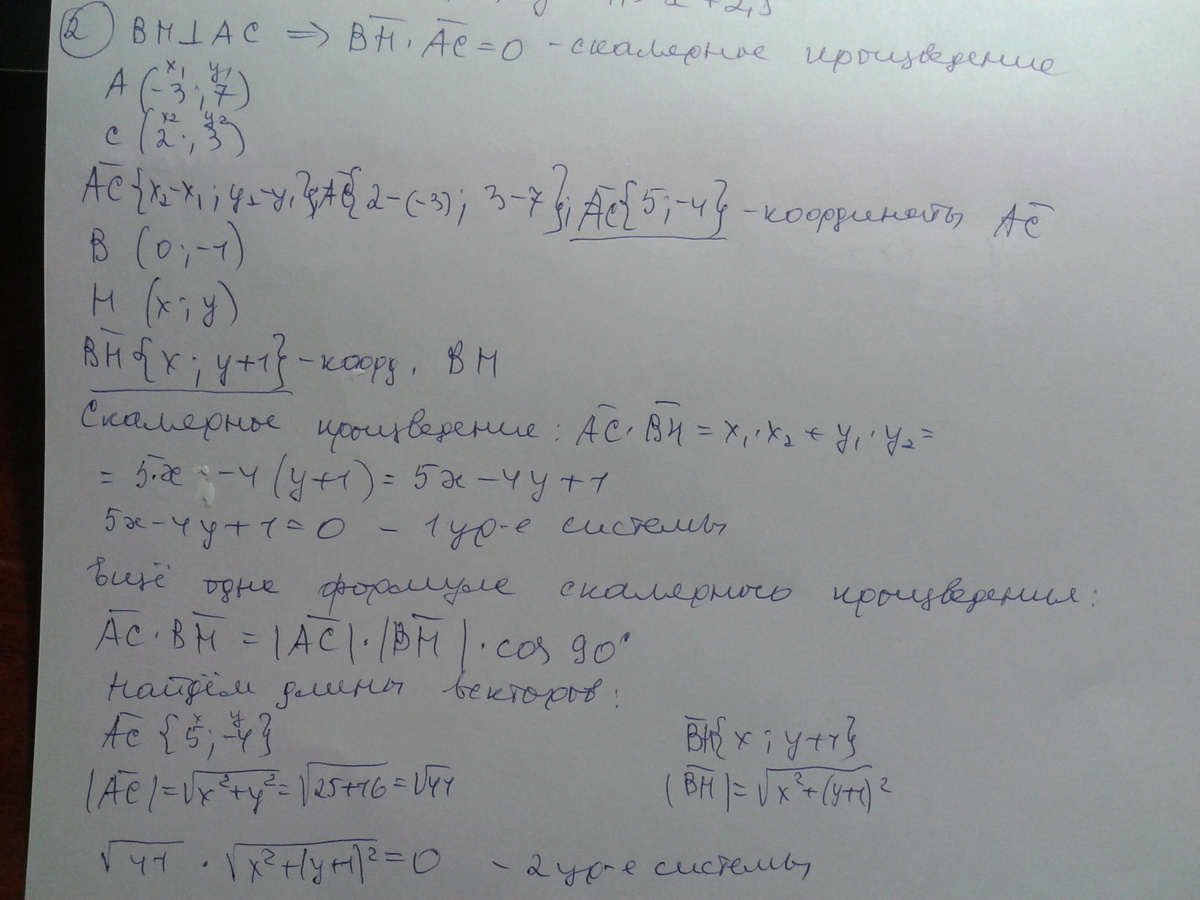 2) BH⊥AC ⇒ B͞H · A͞C = 0 - скалярное произведение
x₁ y₁
A (-3 ; 7)
x₂ y₂
C (2 ; 3)
A͞C {x₂-x₁ ; y₂-y₁}; A͞C {2-(-3) ; 3-7}; A͞C {5 ; -4} - координаты A͞C
B (0 ; -1)
H (x ; y)
B͞H {x ; y+1} - коорд. BH
Скалярное произведение : A͞C · B͞H = x₁·x₂ + y₁·y₂ =
= 5·x -4(y+1) = 5x-4y+1
5x-4y+1=0 - 1 ур-е системы
Ещё одна формула скалярного произведения:
A͞C · B͞H = |A͞C| · |B͞H| · cos 90°
Найдём длины векторов:
x y
A͞C {5 ; -4} B͞H {x ; y+1}
|A͞C| = √(x²+y²) = √(25+16) = √41 |B͞H| = √(x²+(y+1)²)
√41 · √(x²+(y+1)²) = 0 - 2 ур-е системы